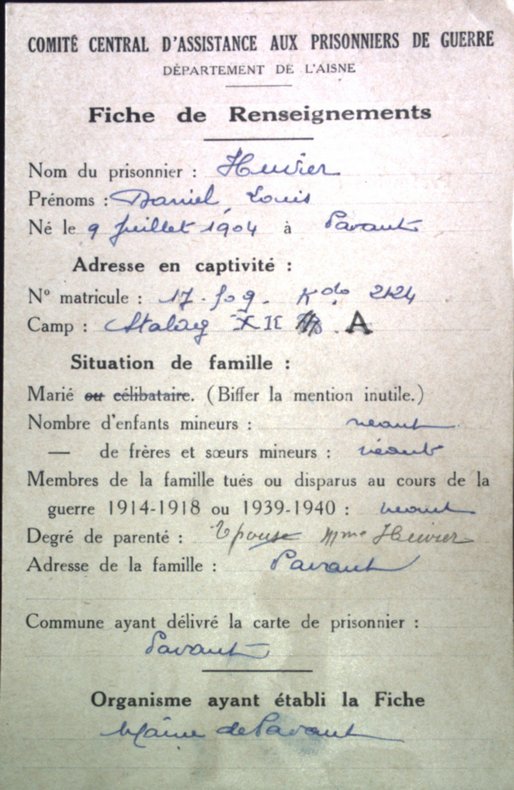 COMITÉ CENTRAL D'ASSISTANCE AUX PRISONNIERS DE GUERRE
DÉPARTEMENT DE L'AISNE
Fiche de Renseignements
Nom du prisonnier : Huvier
Prénoms : Daniel, Louis
Né le 9 Juillet 1904 à Pavant
Adresse en captivité :
N° matricule : 17.509. Kdo 2124
Camp : Stalag XII A
Situation de famille :
Marié ou célibataire. (Biffer la mention inutile.)
Nombre d'enfants mineurs : néant
— de frères et sœurs mineurs : néant
Membres de la famille tués ou disparus au cours de la
guerre 1914-1918 ou 1939-1940 : néant
Degré de parenté : Epouse Mme Huvier
Adresse de la famille : Pavant
Commune ayant délivré la carte de prisonnier :
Pavant
Organisme ayant établi la Fiche
Mairie de Pavant